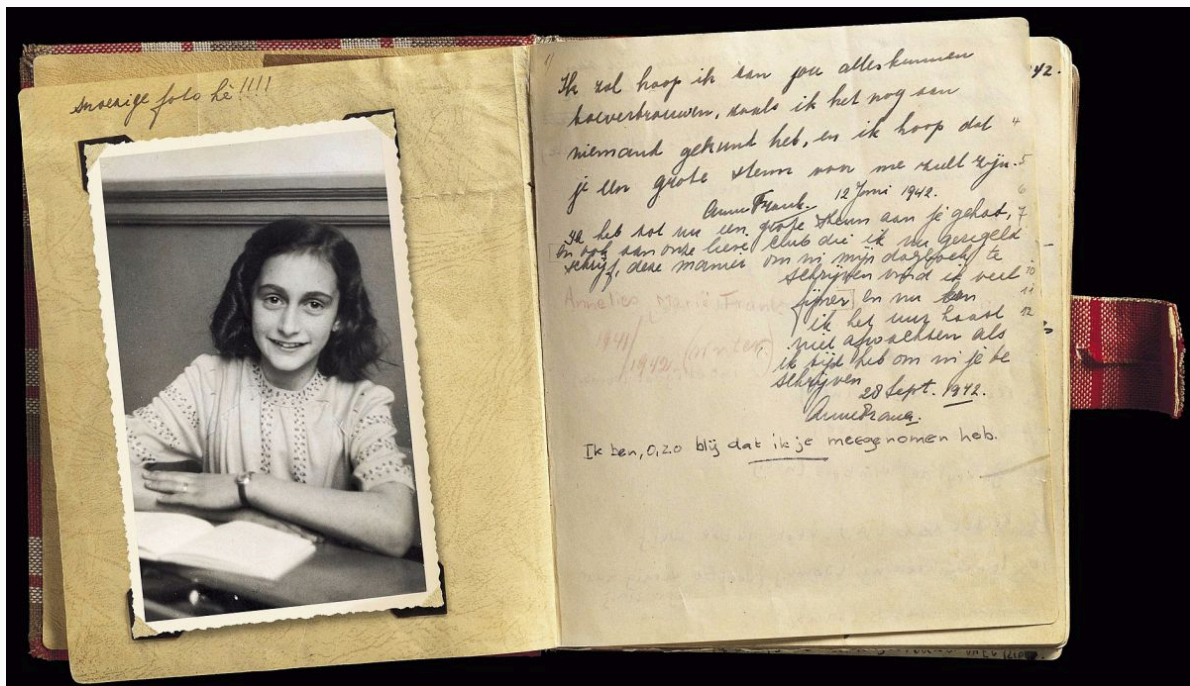 snoezige foto hè!!!!
Ik zal hoop ik aan jou alles kunnen
toevertrouwen, zoals ik het nog aan
niemand gekund heb, en ik hoop dat
je een grote steun voor me zult zijn.
Anne Frank. 12 Juni 1942.
Ik heb tot nu een grote steun aan je gehad,
en ook aan onze lieve club die ik nu geregeld
schrijf, deze manier om in mijn dagboek te
schrijven vind ik veel
fijner en nu kan
ik het uur haast
niet afwachten als
ik tijd heb om in je te
schrijven
28 Sept. 1942.
Anne Frank.
Ik ben, o, zo blij dat ik je meegenomen heb.
42.
Annelies, Marie, Frank
1941/
1942. (Winter)
4
5
6
7
10
11
12